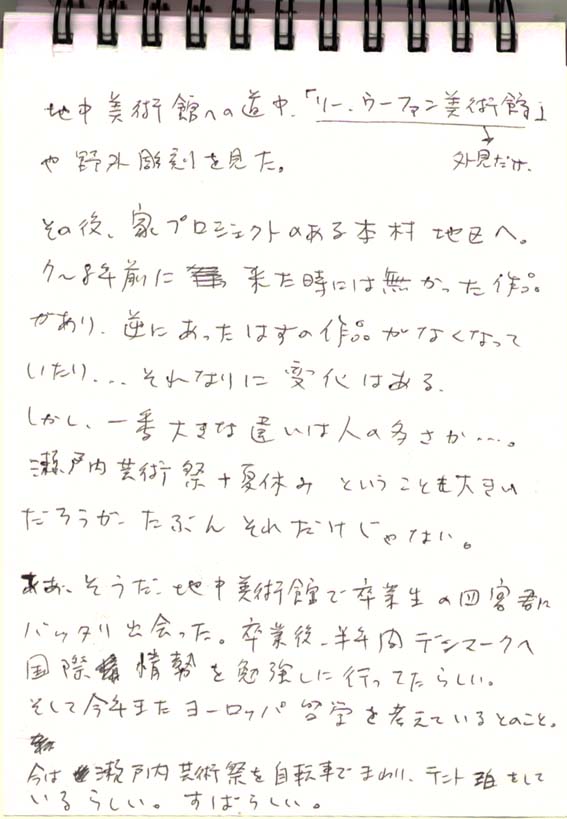 地中美術館への道中、「リー・ウーファン美術館」
や野外彫刻を見た。
外見だけ.
その後、家プロジェクトのある本村地区へ。
7〜8年前に 来た時には無かった作品
があり、逆にあったはずの作品がなくなって
いたり... それなりに変化はある.
しかし、一番大きな違いは人の多さか…。
瀬戸内芸術祭+夏休み ということも大きい
だろうが、たぶんそれだけじゃない。
ああ、そうだ、地中美術館で卒業生の四宮君に
バッタリ出会った。卒業後、半年間デンマークへ
国際 情勢を勉強しに行ってたらしい。
そして今年またヨーロッパ留学を考えているとのこと。
今は 瀬戸内芸術祭を自転車でまわり、テント 泊をして
いるらしい。すばらしい。